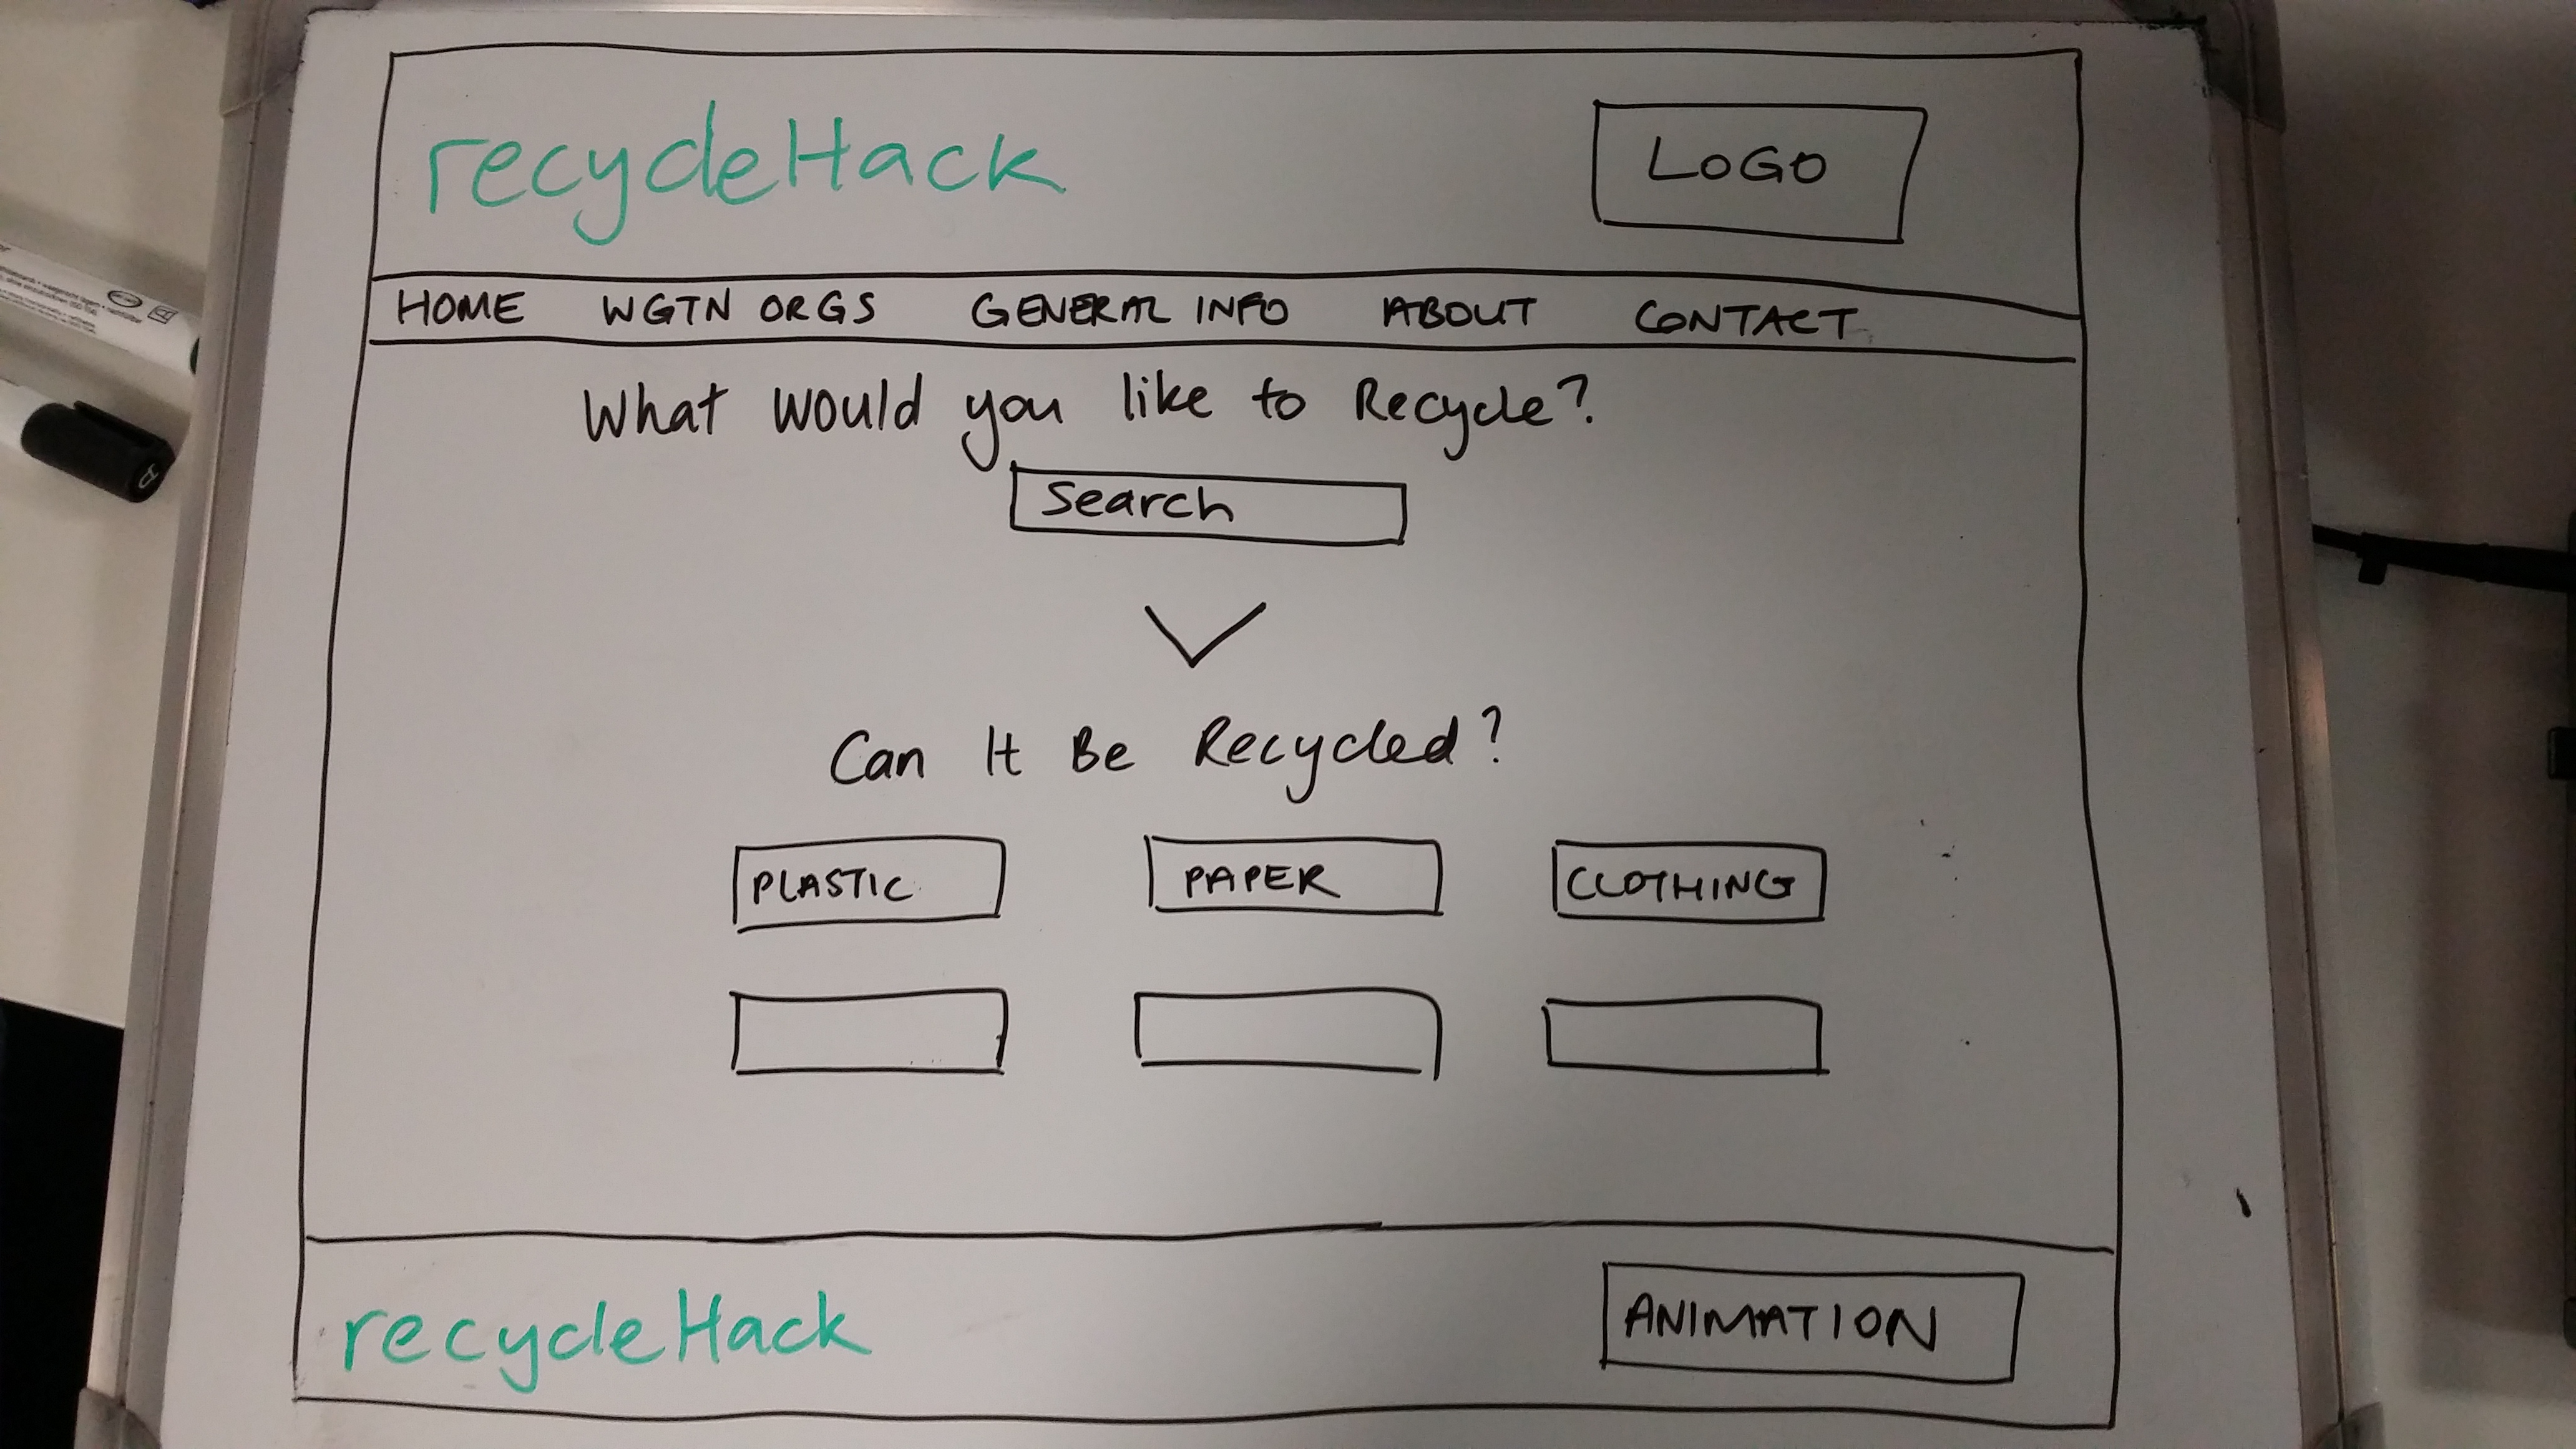 recycleHack
LOGO
HOME WGTN ORGS GENERAL INFO ABOUT CONTACT
What would you like to Recycle?
Search
Can It Be Recycled?
PLASTIC PAPER CLOTHING
recycleHack
ANIMATION